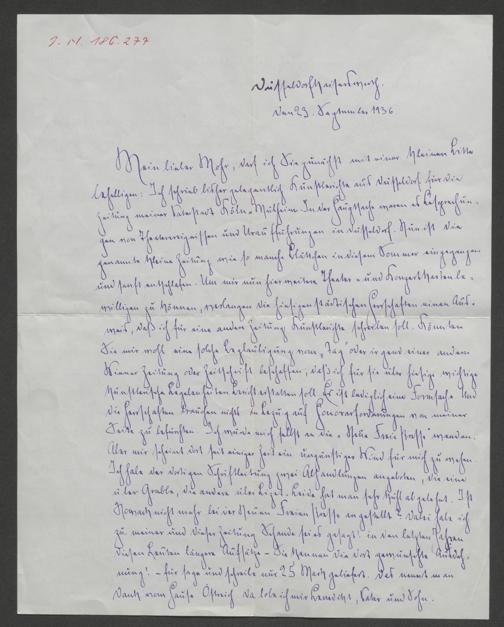 I.N. 186.277
Düsseldorf-Kaiserswerth.
den 23. September 1936
Mein lieber Mohr, darf ich Sie zunächst mit einer kleinen Bitte
behelligen: Ich schrieb bisher gelegentlich Kunstberichte aus Düsseldorf für die
Zeitung meiner Vaterstadt Köln-Mülheim. In der Hauptsache waren es Besprechun-
gen von Theaterereignissen und Uraufführungen in Düsseldorf. Nun ist die
genannte kleine Zeitung wie so manch Blättchen in diesem Sommer eingegangen
und sanft entschlafen. Um mir nun hier weitere Theater- und Konzertkarten be-
willigen zu können, verlangen die hiesigen städtischen Herrschaften einen Aus-
weis, daß ich für eine andere Zeitung Kunstberichte schreiben soll. Könnten
Sie mir wohl eine solche Beglaubigung vom „Tag" oder irgend einer andern
Wiener Zeitung oder Zeitschrift beschaffen, daß ich für sie über hiesige wichtige
künstlerische Begebenheiten Bericht erstatten soll. Es ist lediglich eine Formsache. Und
die Herrschaften brauchen nicht in bezug auf Honorarforderungen von meiner
Seite zu befürchten. Ich würde mich selbst an die „Neue Freie Presse" wenden.
Aber mir scheint dort seit einiger Zeit ein ungünstiger Wind für mich zu wehen.
Ich habe der dortigen Schriftleitung zwei Abhandlungen angeboten, die eine
über Grabbe, die andere über Liszt. Beide hat man sehr kühl abgelehnt. Ist
Nowak nicht mehr bei der Neuen Freien Presse angestellt? Dabei habe ich
zu meiner und dieser Zeitung Schande sei es gesagt in den letzten Jahren
diesen Leuten längere Aufsätze - Sie kennen die dort gewünschte Ausdeh-
nung! - für sage und schreibe nur 25 Mark geliefert. Das nennt man
Dank vom Hause Östreich. Da lobe ich mir Benedikt, Vater und Sohn.